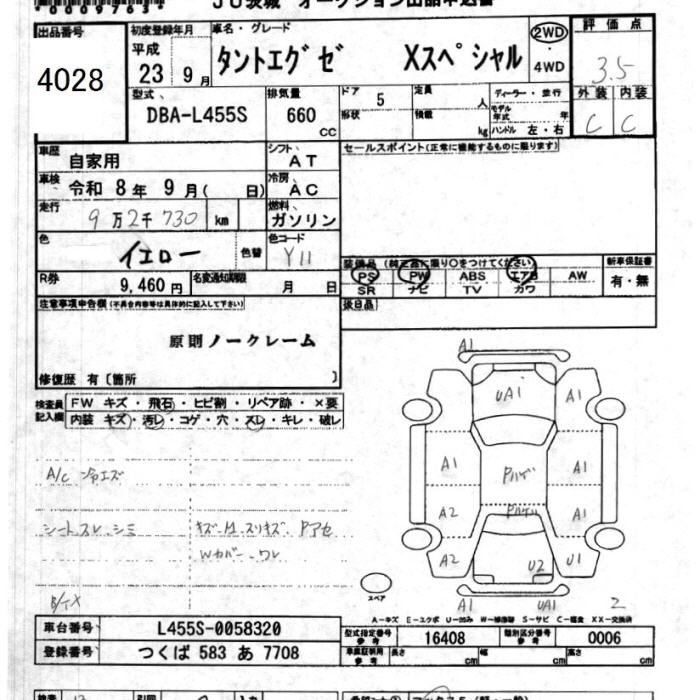 JU茨城 オークション出品申込書
出品番号 4028
初度登録年月 平成 23 9月
車名・グレード タントエグゼ Xスペシャル
2WD・4WD
評価点 3.5
外装 C 内装 C
型式 DBA-L455S
排気量 660 CC
ドア 5 形状
定員 人 積載 kg
ディーラー・並行
モデル年式 年
ハンドル 左・右
車歴 自家用
シフト AT
セールスポイント(正常に機能するものに限ります)
車検 令和 8年 9月( 日)
冷房 AC
走行 9万2千730 km
燃料 ガソリン
色 イエロー 色替
色コード Y11
R券 9,460円 名変通知期限 月 日
装備品(純正品に限り○をつけてください)
PS PW ABS エアB AW
SR ナビ TV カワ
新車保証書 有・無
後日品
注意事項申告欄(不具合内容等は具体的に記入して下さい)
原則ノークレーム
修復歴 有〔箇所 〕
検査員記入欄
FW キズ・飛石・ヒビ割・リペア跡・×要
内装 キズ・汚レ・コゲ・穴・スレ・キレ・破レ
A/C 冷エズ
シートスレ、シミ
キズ、凹、スリキズ、Pアセ
Wカバー、ワレ
A1
UA1 A1
A1 Pハゲ A1
A2 Pハゲ A1
A2 U2 U1
A1 UA1 2
スペア
A-キズ E-エクボ U-凹み W-補修跡 S-サビ C-腐食 XX-交換済
車台番号 L455S-0058320
登録番号 つくば 583 あ 7708
型式指定番号 参考 16408
類別区分番号 参考 0006
車庫証明用 参考 長さ cm 幅 cm 高さ cm